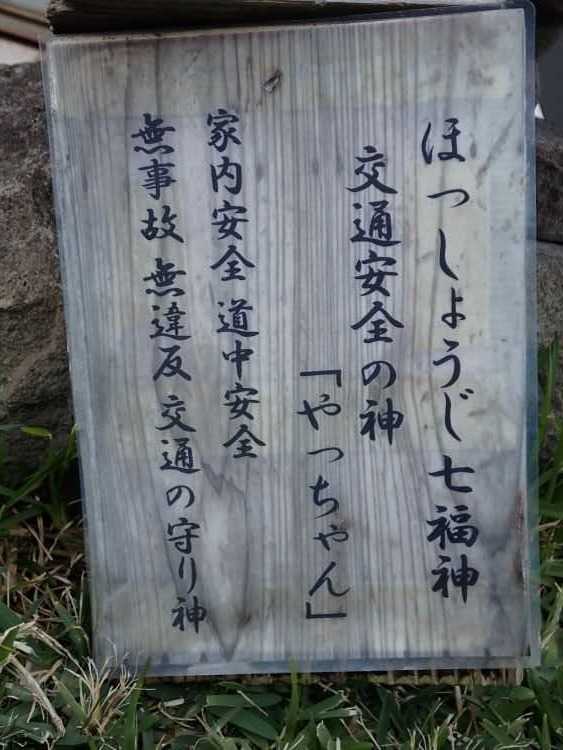 ほっしょうじ七福神
交通安全の神
「やっちゃん」
家内安全 道中安全
無事故 無違反 交通の守り神